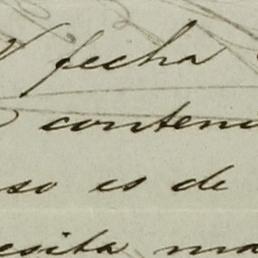 fecha
conteni
so es de
esita ma